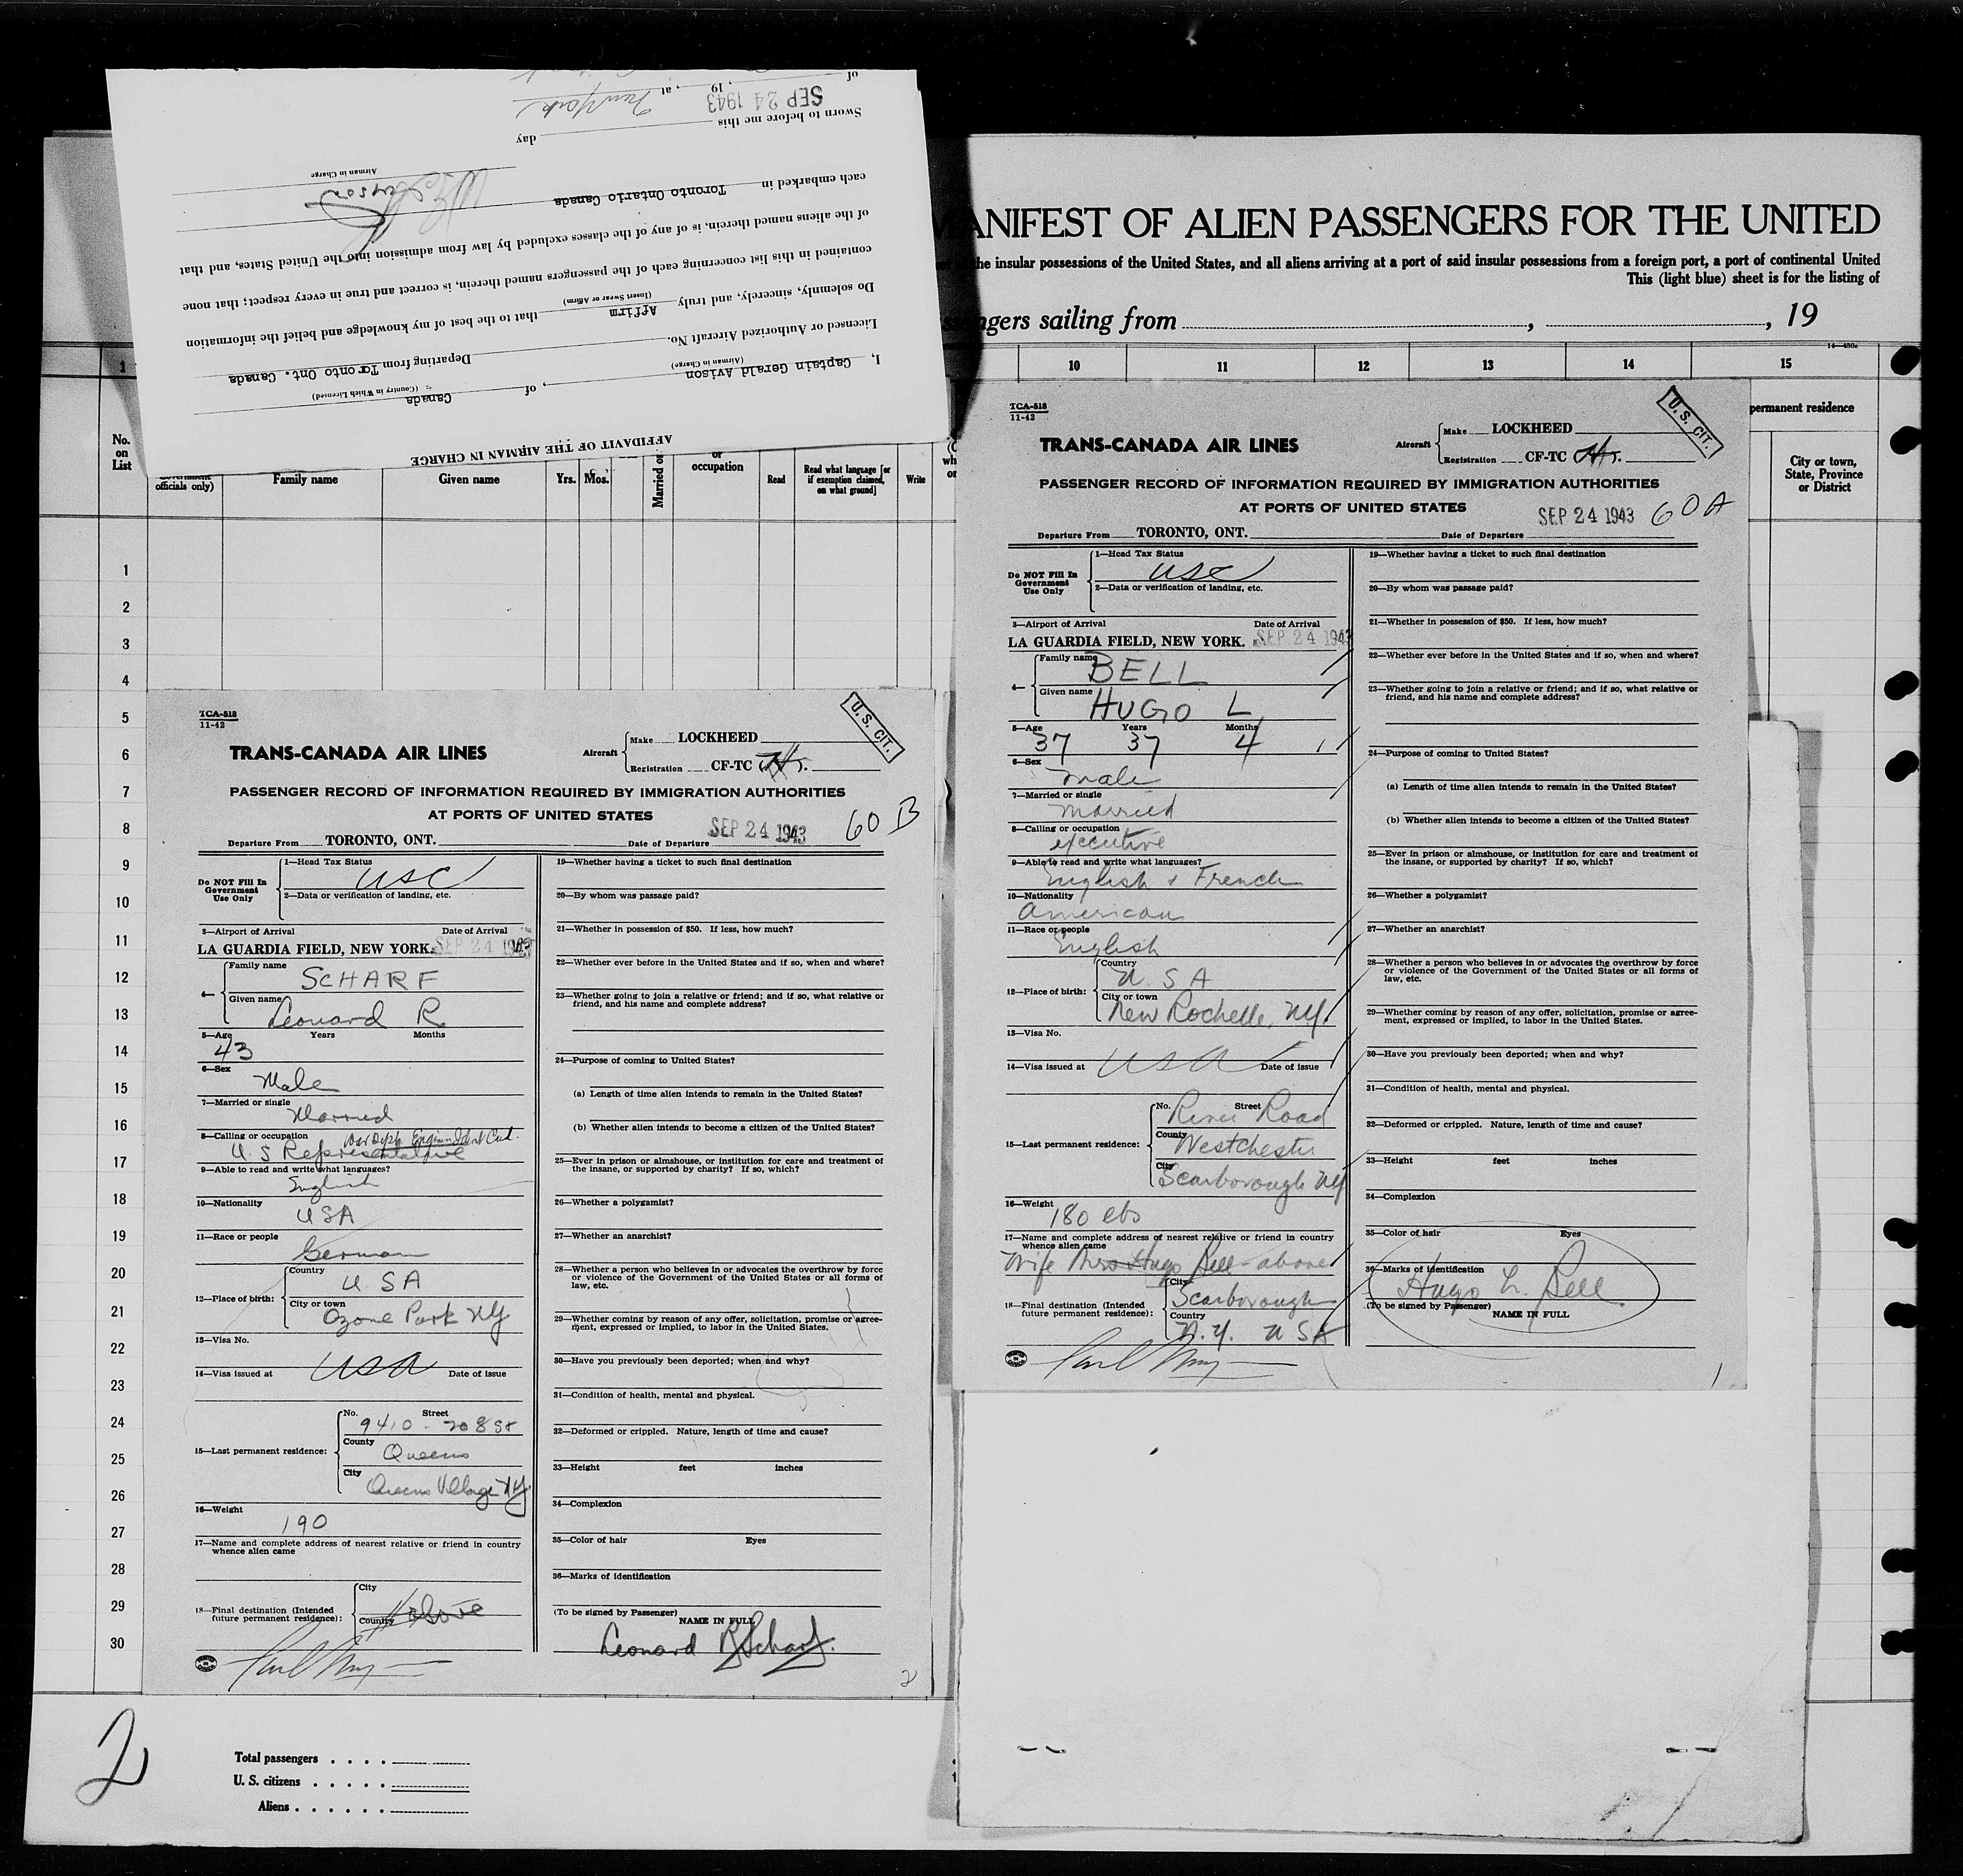 AFFIDAVIT OF THE AIRMAN IN CHARGE
I, Captain Gerald Avison, of Canada
(Airman in Charge) (Country in Which Licensed)
Licensed or Authorized Aircraft No. Departing from Toronto Ont. Canada
Do solemnly, sincerely, and truly Affirm that to the best of my knowledge and belief the information
(Insert Swear or Affirm)
contained in this list concerning each of the passengers named therein, is correct and true in every respect; that none
of the aliens named therein, is of any of the classes excluded by law from admission into the United States, and that
each embarked in Toronto Ontario Canada
Airman in Charge
Sworn to before me this day
SEP 24 1943
of , 19 , at New York
ANIFEST OF ALIEN PASSENGERS FOR THE UNITED
he insular possessions of the United States, and all aliens arriving at a port of said insular possessions from a foreign port, a port of continental United
This (light blue) sheet is for the listing of
ngers sailing from , , 19
1 10 11 12 13 14 15
No.
on
List
officials only)
Family name Given name Yrs. Mos. Married or
or
occupation
Read
Read what language [or
if exemption claimed,
on what ground]
Write
permanent residence
City or town,
State, Province
or District
1
2
3
4
5
6
7
8
9
10
11
12
13
14
15
16
17
18
19
20
21
22
23
24
25
26
27
28
29
30
TCA-518
11-42
U. S. CIT.
TRANS-CANADA AIR LINES
Aircraft Make LOCKHEED
Registration CF-TC
PASSENGER RECORD OF INFORMATION REQUIRED BY IMMIGRATION AUTHORITIES
AT PORTS OF UNITED STATES
60 B
Departure From TORONTO, ONT. Date of Departure SEP 24 1943
Do NOT Fill In
Government
Use Only
1—Head Tax Status
USC
2—Data or verification of landing, etc.
3—Airport of Arrival Date of Arrival
LA GUARDIA FIELD, NEW YORK. SEP 24 1943
4—
Family name SCHARF
Given name Leonard R
5—Age Years Months
43
6—Sex
Male
7—Married or single
Married
8—Calling or occupation
U. S Representative
9—Able to read and write what languages?
English
10—Nationality
USA
11—Race or people
German
12—Place of birth:
Country
U. S A
City or town
Ozone Park NY
13—Visa No.
14—Visa issued at USA Date of issue
15—Last permanent residence:
No. Street
9410 - 208 St
County
Queens
City
Queens Village NY
16—Weight
190
17—Name and complete address of nearest relative or friend in country
whence alien came
18—Final destination (Intended
future permanent residence):
City
Country
above
19—Whether having a ticket to such final destination
20—By whom was passage paid?
21—Whether in possession of $50. If less, how much?
22—Whether ever before in the United States and if so, when and where?
23—Whether going to join a relative or friend; and if so, what relative or
friend, and his name and complete address?
24—Purpose of coming to United States?
(a) Length of time alien intends to remain in the United States?
(b) Whether alien intends to become a citizen of the United States?
25—Ever in prison or almshouse, or institution for care and treatment of
the insane, or supported by charity? If so, which?
26—Whether a polygamist?
27—Whether an anarchist?
28—Whether a person who believes in or advocates the overthrow by force
or violence of the Government of the United States or all forms of
law, etc.
29—Whether coming by reason of any offer, solicitation, promise or agree-
ment, expressed or implied, to labor in the United States.
30—Have you previously been deported; when and why?
31—Condition of health, mental and physical.
32—Deformed or crippled. Nature, length of time and cause?
33—Height feet inches
34—Complexion
35—Color of hair Eyes
36—Marks of identification
(To be signed by Passenger) NAME IN FULL
Leonard R Scharf.
2
TCA-518
11-42
U. S. CIT.
TRANS-CANADA AIR LINES
Aircraft Make LOCKHEED
Registration CF-TC
PASSENGER RECORD OF INFORMATION REQUIRED BY IMMIGRATION AUTHORITIES
AT PORTS OF UNITED STATES
60 A
Departure From TORONTO, ONT. Date of Departure SEP 24 1943
Do NOT Fill In
Government
Use Only
1—Head Tax Status
USC
2—Data or verification of landing, etc.
3—Airport of Arrival Date of Arrival
LA GUARDIA FIELD, NEW YORK. SEP 24 1943
4—
Family name BELL
Given name HUGO L
5—Age Years Months
37 37 4
6—Sex
Male
7—Married or single
Married
8—Calling or occupation
executive
9—Able to read and write what languages?
English + French
10—Nationality
American
11—Race or people
English
12—Place of birth:
Country
U. S A
City or town
New Rochelle, NY.
13—Visa No.
14—Visa issued at USA Date of issue
15—Last permanent residence:
No. Street
River Road
County
Westchester
City
Scarborough NY
16—Weight
180 lbs
17—Name and complete address of nearest relative or friend in country
whence alien came
Wife Mrs Hugo Bell - above
18—Final destination (Intended
future permanent residence):
City
Scarborough
Country
N. Y. U S A
19—Whether having a ticket to such final destination
20—By whom was passage paid?
21—Whether in possession of $50. If less, how much?
22—Whether ever before in the United States and if so, when and where?
23—Whether going to join a relative or friend; and if so, what relative or
friend, and his name and complete address?
24—Purpose of coming to United States?
(a) Length of time alien intends to remain in the United States?
(b) Whether alien intends to become a citizen of the United States?
25—Ever in prison or almshouse, or institution for care and treatment of
the insane, or supported by charity? If so, which?
26—Whether a polygamist?
27—Whether an anarchist?
28—Whether a person who believes in or advocates the overthrow by force
or violence of the Government of the United States or all forms of
law, etc.
29—Whether coming by reason of any offer, solicitation, promise or agree-
ment, expressed or implied, to labor in the United States.
30—Have you previously been deported; when and why?
31—Condition of health, mental and physical.
32—Deformed or crippled. Nature, length of time and cause?
33—Height feet inches
34—Complexion
35—Color of hair Eyes
36—Marks of identification
Hugo L. Bell
(To be signed by Passenger) NAME IN FULL
1
2
Total passengers . . . .
U. S. citizens . . . . .
Aliens . . . . . .